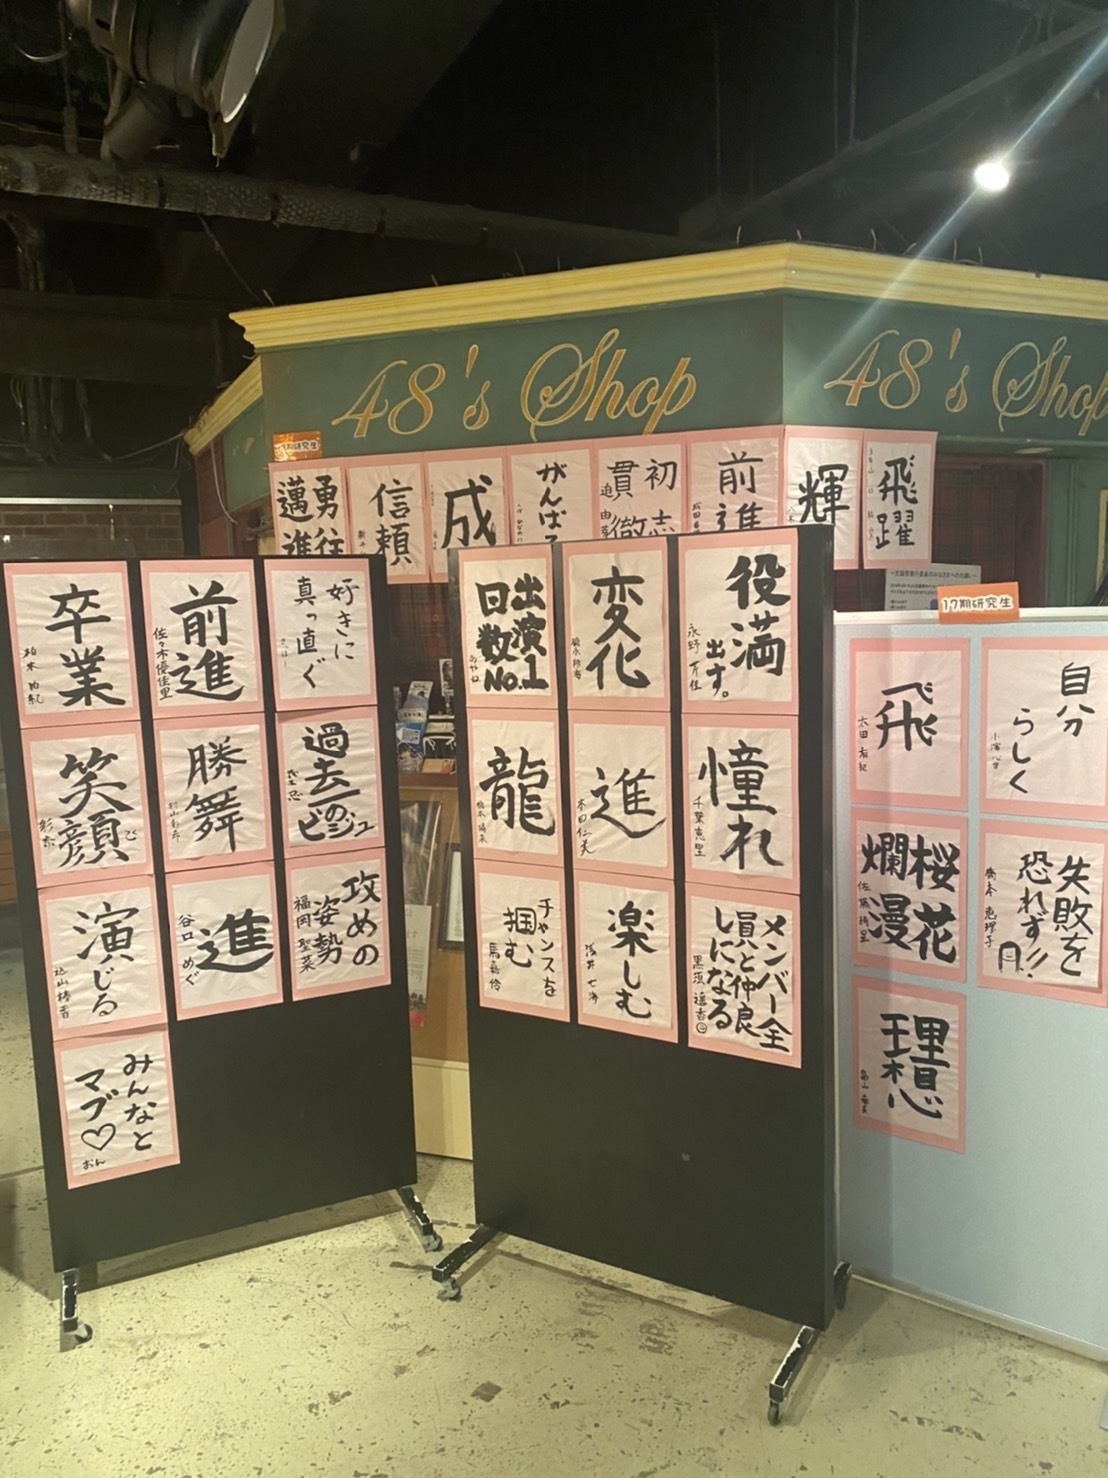 48's Shop
48's Shop
勇往
邁進
信頼
成
がんばる
初志
貫徹
前進
輝
飛躍
卒業
柏木 由紀
前進
佐々木優佳里
好きに
真っ直ぐ
笑顔
彩奈
勝舞
過去一の
ビジュ
演じる
込山榛香
進
谷口 めぐ
攻めの
姿勢
福岡 聖菜
みんなと
マブ♡
おん
出演
日数
No.1
変化
役満
出す。
永野 芹佳
龍
橋本 陽菜
進
茶田仁美
憧れ
千葉恵里
チャンスを
掴む
馬嘉伶
楽しむ
浅井 七海
メンバー全
員と仲良
しになる
黒須 遥香
17期研究生
飛
太田 有紀
自分
らしく
桜花
爛漫
佐藤 綺星
失敗を
恐れず!!
橋本 恵理子
理想